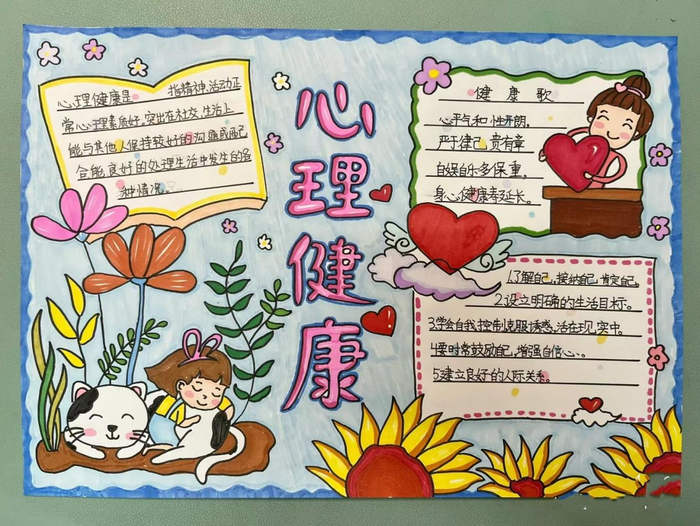 心理健康
心理健康是 指精神、活动正
常、心理素质好,突出在社交、生活上
能与其他人保持较好的沟通或配
合能良好的处理生活中发生的各
种情况。
健康歌
心平气和 性开朗。
严于律己 贵有章
自娱自乐多保重。
身心健康寿延长。
1.了解自己,接纳自己,肯定自己。
2.设立明确的生活目标。
3.学会自我控制克服诱惑,活在现实中。
4.要时常鼓励自己,增强自信心。
5.建立良好的人际关系。